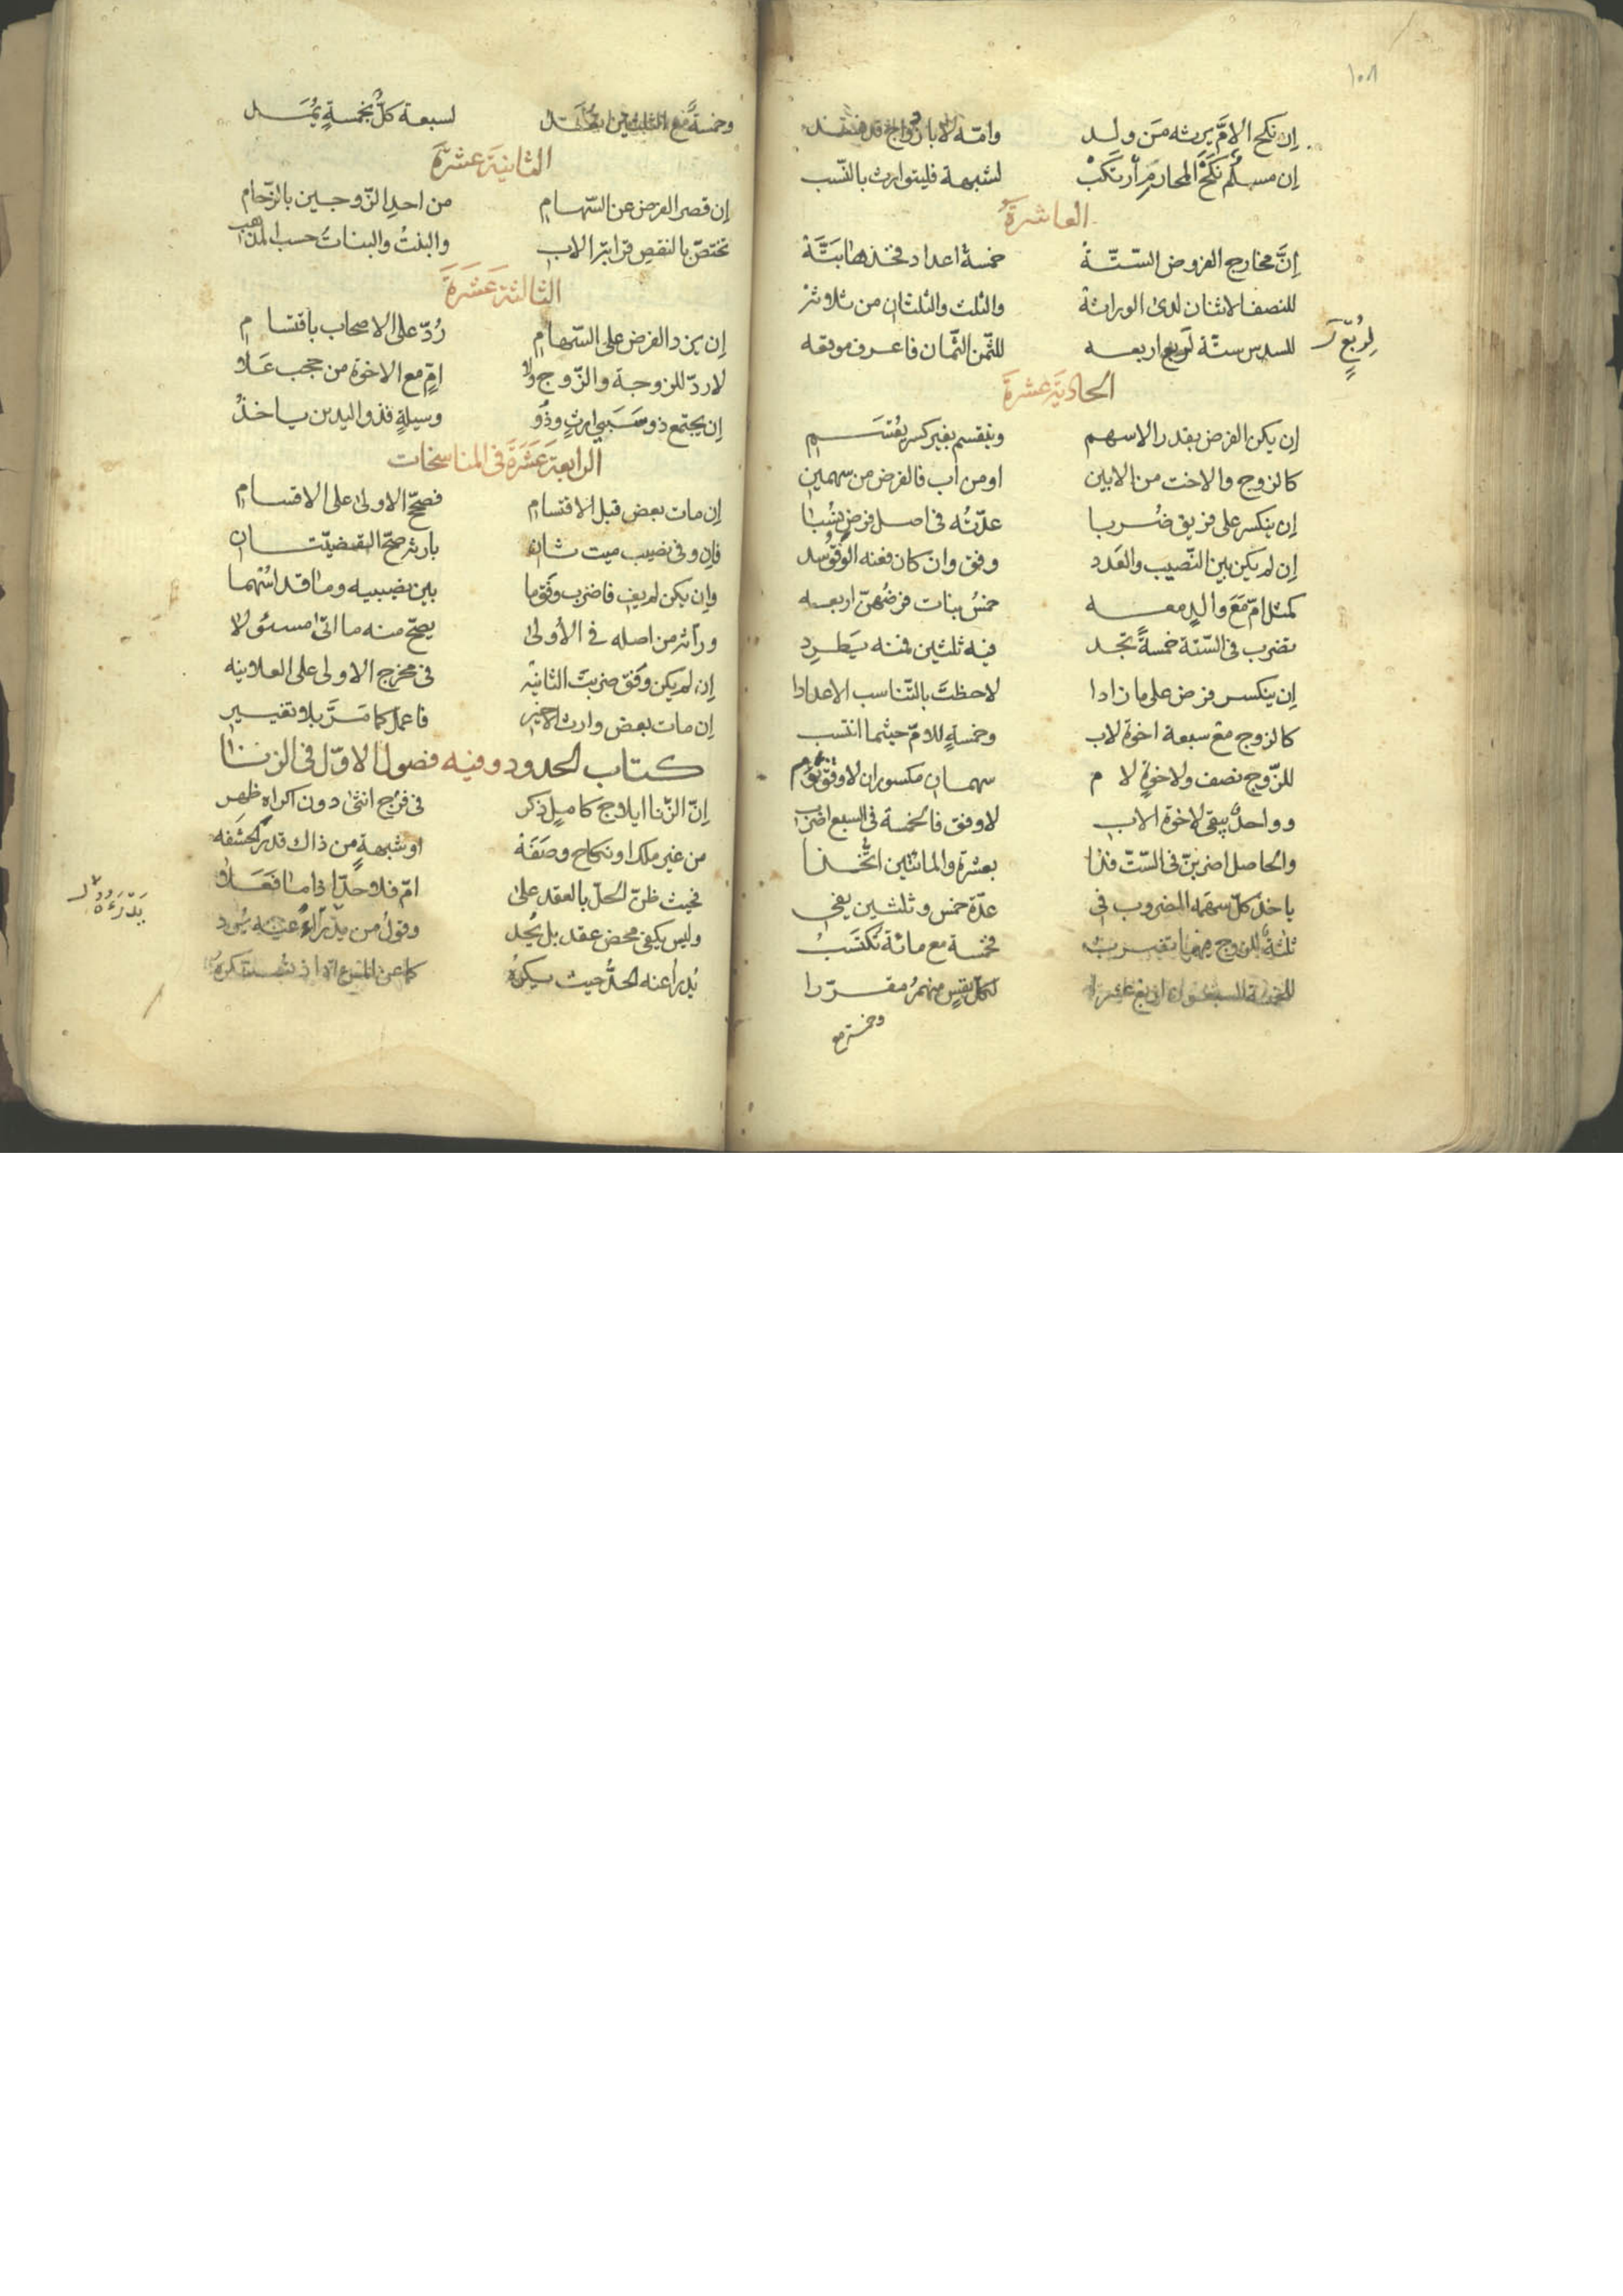 ١٥٨
إن نكح الامَّ يرثه مَن ولد وامّه لا بازدواج قد
إن مسلم نَكَحَ المحارم ارتكبْ لشبهة فليتوارث بالنّسب
العاشرةُ
إنَّ مخارج الفروض السّتّة خمسة اعداد فخذها بَتَّة
للنصف الاثنان لدى الوراثة والثلث والثلثان من ثلاثة
للسدس ستّة لربع اربعه للثّمن الثّمان فاعرف موقعه
لِرُبعٍ
الحادِيَة عشرة
إن يكن الفرض بقدر الاسهم وينقسم بغير كسر يُقتسم
كالزوج والاخت من الابين او من اب فالفرض من سهمين
إن ينكسر على فريق ضُربا عدّتُه في اصل فرض نُسبا
إن لم يكن بين النّصيب والعَدد وفق وان كان فعنه الوفق سد
كمثل امّ مَعَ والدٍ معه خمسُ بنات فرضُهنّ اربعه
تضرب في السّتة خمسةً تجد فيه ثلثين فمنه يَطرِد
إن ينكسر فرض على ما زادا لاحظتَ بالتّناسب الاعدادا
كالزوج مع سبعة اخوة لاب وخمسةٍ للامّ حيثما انتسب
للزّوج نصف ولاخوةٍ لام سهمان مكسوران لا وفق
وواحدٌ يبقى لاخوة الاب لا وفق فالخمسة في السبع اضرب
والحاصل اضربنّ في السّتّ فذا بعشرة والمائتين اتُّخذا
ياخذ كلّ سهمه المضروب في عدّة خمس وثلثين يفي
ثلثةٌ للزوج فيها تضرب فخمسة مع مائة تُكتَسبُ
لكلّ نفسٍ منهمُ مقرّرا
وخمسة مع
وخمسةً مع الثلثين لسبعة كلٌّ بخمسةٍ
الثانيَة عشرَة
إن قصر الفرض عن السّهام من احد الزّوجين بالزّحام
تختصّ بالنقص قرابة الاب والبنتُ والبناتُ حسب المذاهب
الثالثة عَشَرَة
إن يزد الفرض على السّهام رُدّ على الاصحاب باقتسام
لا ردّ للزوجة والزّوج ولا امٍّ مع الاخوة من حجب عَلا
إن يجتمع ذو سَبَبي ارثٍ وذُو وسيلةٍ فذو اليدين ياخذُ
الرابعة عَشَرَة في المناسخات
إن مات بعض قبل الاقتسام فصحّح الاولى على الاقسام
فإن وفى نصيب ميت ثانِ بارثه صحّ القضيّتان
وإن يكن لم يفِ فاضرب وَفْقَ ما بين نصيبيه وما قد اسهما
ورّاثه من اصله في الأولى يصحّ منه ما اتى مسئولا
إن لم يكن وَفق ضربتَ الثانيه في مخرج الاولى على العلانيه
إن مات بعض وارث الاخير فاعمل كما مَرَّ بلا تغيير
كتاب الحدود وفيه فصول الاوّل في الزنا
إنّ الزّنا ايلاج كاملٍ ذكر في فرج انثى دون اكراه ظهر
من غير ملك او نكاح وصَفَهْ او شبهةٍ من ذاك قدر الحشفه
فحيث ظنّ الحلّ بالعقد على امّ فلا حدّ اذا ما فَعَلا
وليس يكفي محض عقد بل يُحد وقولُ من
يُدرأ عنه الحدُّ حيث يكرهُ